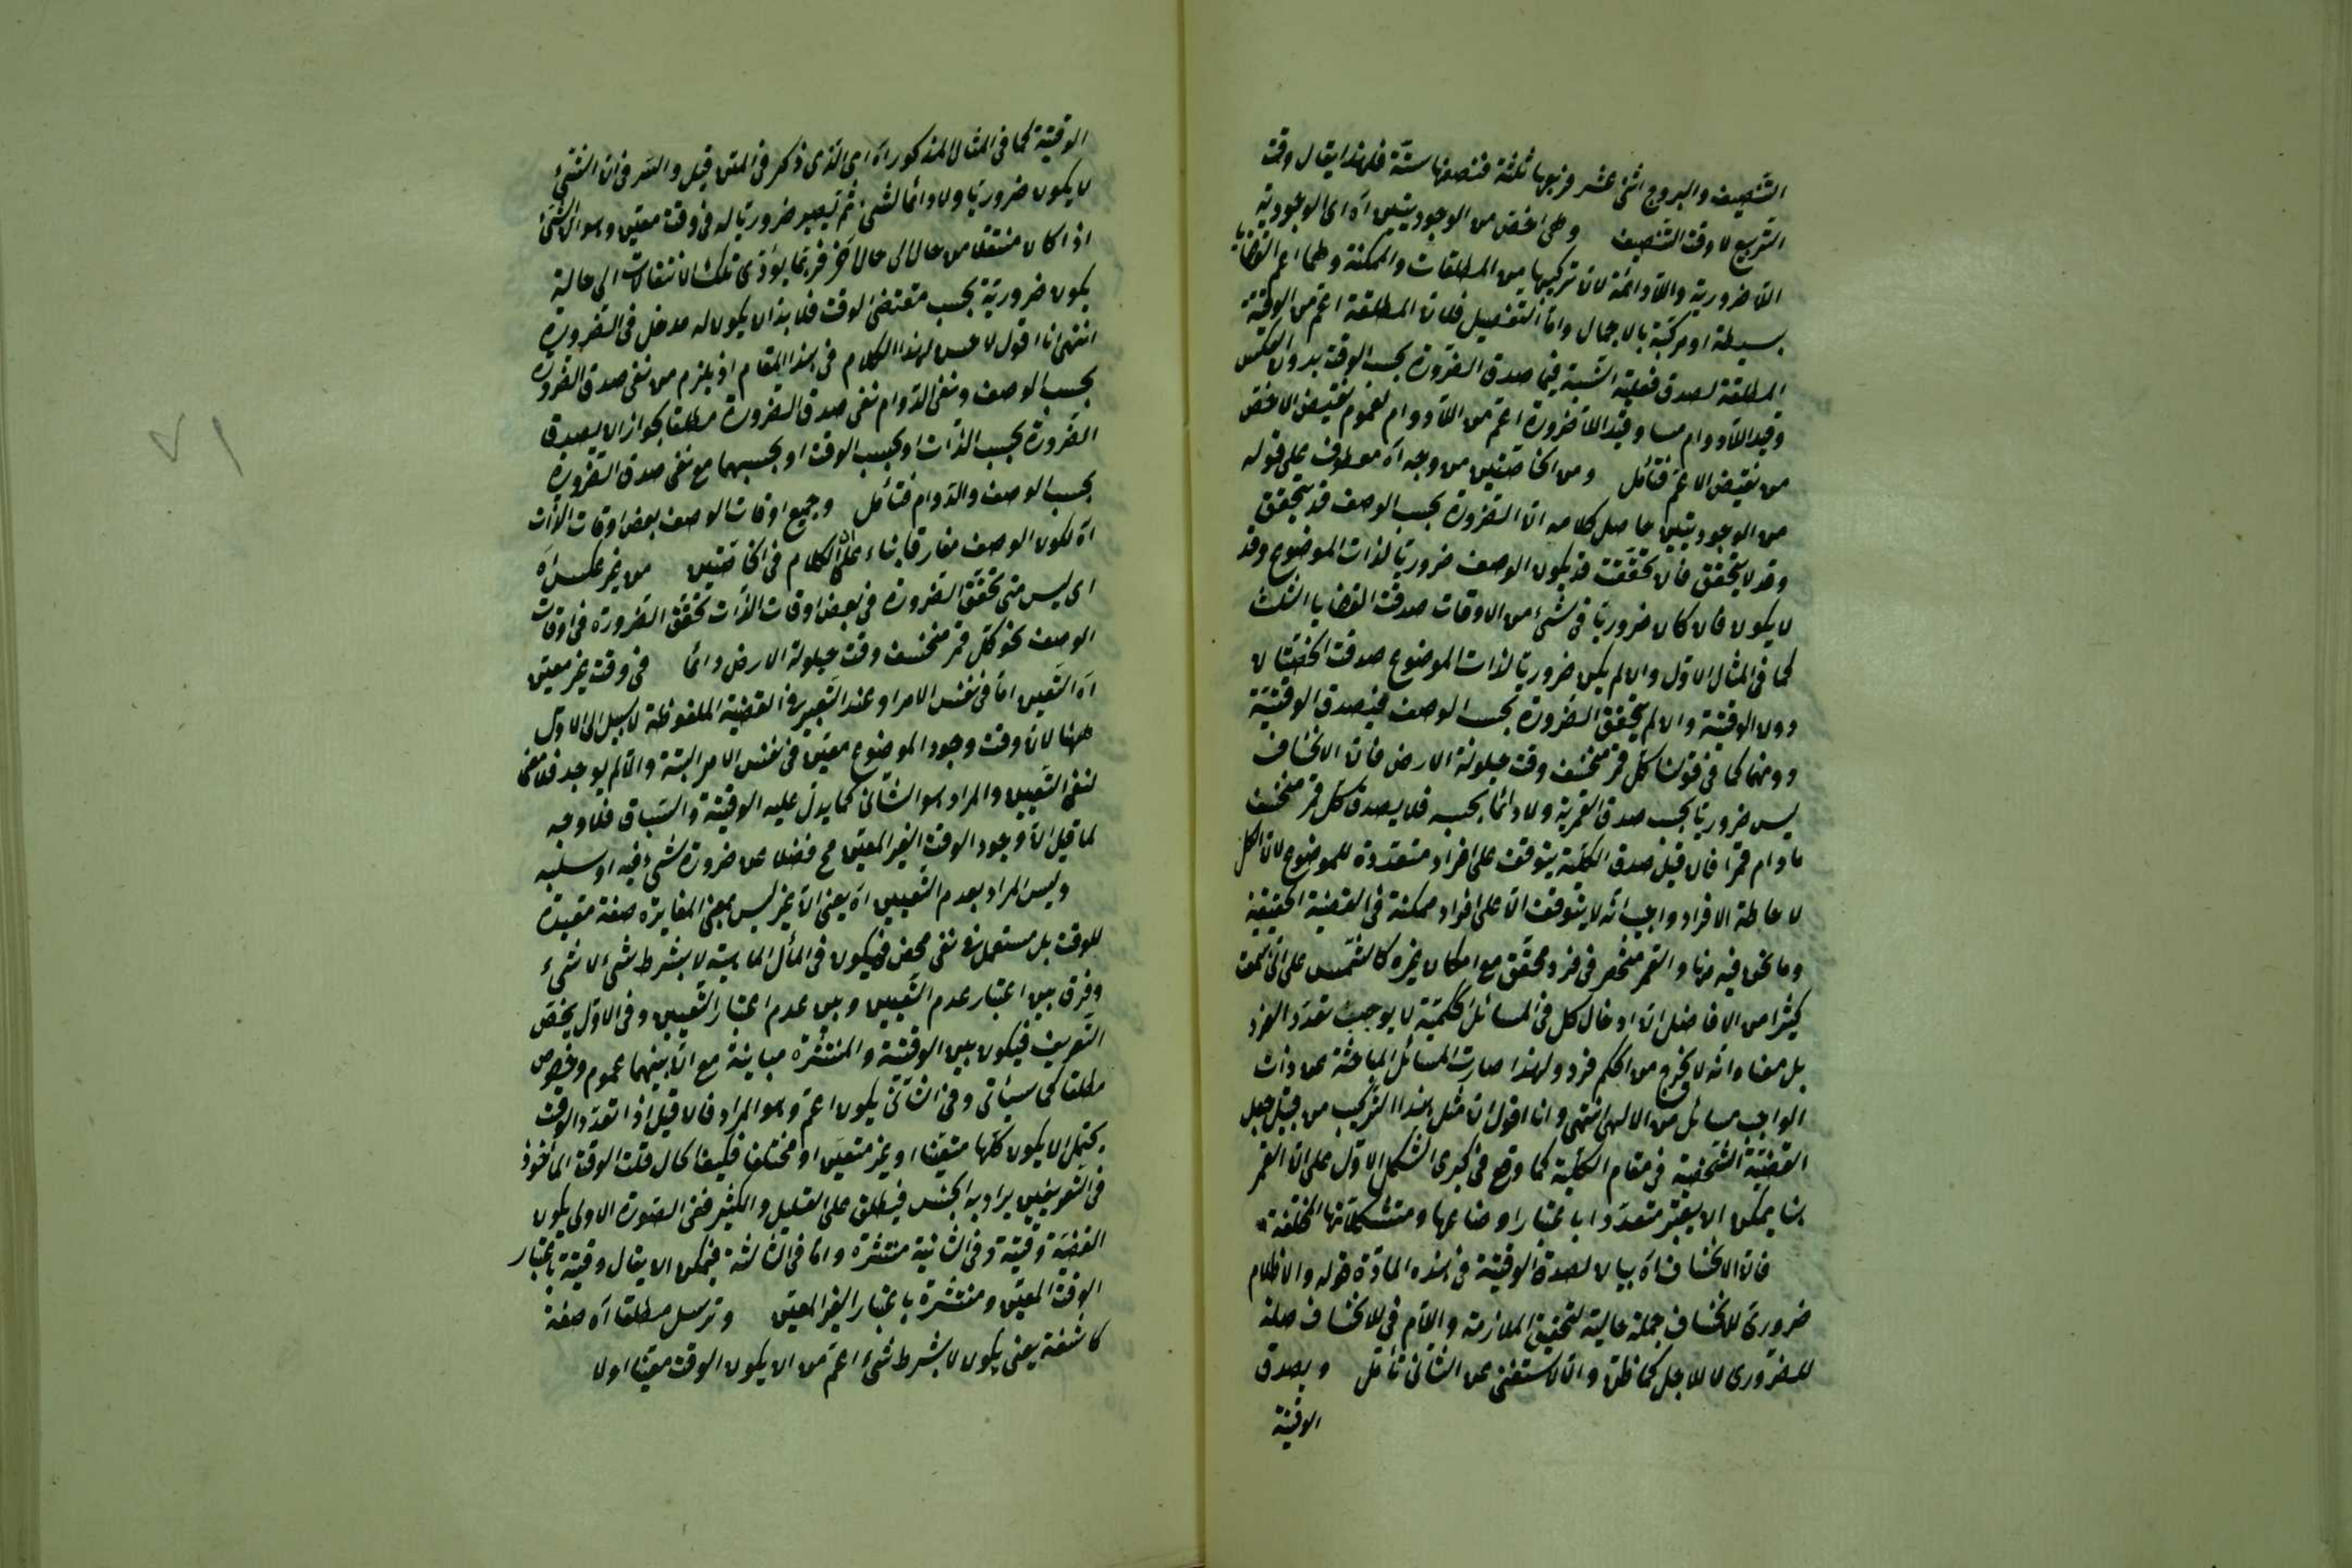 التنصيف والبروج اثنى عشر فربعها ثلثة فنصفها ستة فلهذا يقال وقت
التربيع لا وقت التنصيف وهى اخص من الوجوديتين آه اى الوجودية
اللاضرورية واللادائمة لان تركيبها من المطلقات والممكنة وهما اعم القضايا
بسيطة او مركبة بالاجمال واما التفصيل فلان المطلقة اعم من الوقتية
المطلقة لصدق فعلية النسبة فيما صدق الضرورة بحسب الوقت بدون العكس
وقيد اللادوام مساو وقيد اللاضرورة اعم من اللادوام لعموم نقيض الاخص
من نقيض الاعم فتأمل ومن الخاصتين من وجه آه معطوف على قوله
من الوجوديتين حاصل كلامه ان الضرورة بحسب الوصف قد يتحقق
وقد لا يتحقق فان تحققت قد يكون الوصف ضروريا لذات الموضوع وقد
لا يكون فان كان ضروريا فى شئ من الاوقات صدقت القضايا الثلث
كما فى المثال الاول وان لم يكن ضروريا لذات الموضوع صدقت الخاصتان
دون الوقتية وان لم يتحقق الضرورة بحسب الوصف فيصدق الوقتية
دونهما كما فى قولنا كل قمر منخسف وقت حيلولة الارض فان الانخساف
ليس ضروريا بحسب صدق القمرية ولا دائما بحسبه فلا يصدق كل قمر منخسف
مادام قمرا فان قيل صدق الكلية يتوقف على افراد متعددة للموضوع لان الكل
لاحاطة الافراد واجيب انه لا يتوقف الا على افراد ممكنة فى القضية الحقيقية
وما نحن فيه منها والقمر منحصر فى فرد محقق مع امكان غيره كالشمس على انى سمعت
كثيرا من الافاضل ان ادخال كل فى المسائل الحكمية لا يوجب تعدد الفرد
بل معناه انه لا يخرج من الحكم فرد ولهذا صارت المسائل الباحثة عن ذات
الواجب مسائل من الالهى انتهى وانا اقول ان مثل هذا التركيب من قبيل جعل
القضية الشخصية فى مقام الكلية كما وقع فى كبرى الشكل الاول على ان القمر
هنا يمكن ان يعتبر متعددا باعتبار اوضاعها وتشكلاتها المختلفة
فان الانخساف آه بيان لصدق الوقتية فى هذه المادة قوله والاظلام
ضرورى للانخساف جملة حالية لتحقيق الملازمة واللام فى للانخساف صلة
للضرورى لا للاجل كما ظن والا لاستغنى عن الثانى تأمل ويصدق
الوقتية
الوقتية كما فى المثال المذكور آه اى الذى ذكر فى المتن قيل والسر فى ان الشئ
لا يكون ضروريا ولا دائما لشئ ثم يصير ضروريا له فى وقت معين وهو ان الشئ
اذا كان منتقلا من حال الى حال آخر فربما يؤدى تلك الانتقالات الى حالة
يكون ضرورية بحسب مقتضى الوقت فلا بد ان يكون له مدخل فى الضرورة
انتهى انا اقول لا مس لهذا الكلام فى هذا المقام اذ يلزم من نفى صدق الضرورة
بحسب الوصف ونفى الدوام نفى صدق الضرورة مطلقا لجواز ان يصدق
الضرورة بحسب الذات او بحسب الوقت او بحسبهما مع نفى صدق الضرورة
بحسب الوصف والدوام فتأمل وجميع اوقات الوصف بعض اوقات الذات
آه لكون الوصف مفارقا بناء على ان الكلام فى الخاصتين من غير عكس آه
اى ليس متى تحقق الضرورة فى بعض اوقات الذات تحقق الضرورة فى اوقات
الوصف نحو كل قمر منخسف وقت حيلولة الارض دائما فى وقت غير معين
آه التعيين اما فى نفس الامر او عند التعبير فى القضية الملفوظة لا سبيل الى الاول
ههنا لان وقت وجود الموضوع معين فى نفس الامر البتة والا لم يوجد فلا معنى
لنفى التعيين والمراد هو الثانى كما يدل عليه الوقتية والسياق فلا وجه
لما قيل لا وجود الوقت الغير المعين مح فضلا عن ضرورة شئ فيه او سلبه
وليس المراد بعدم التعيين آه يعنى ان غير ليس بمعنى المغايرة صفة مقيدة
للوقت بل مستعمل فى نفى محض فيكون فى المآل الماهية لا بشرط شئ لا شئ
وفرق بين اعتبار عدم التعيين وبين عدم اعتبار التعيين وفى الاول يختص
التعريف فيكون بين الوقتية والمنتشرة مباينة مع ان بينهما عموم وخصوص
مطلقا كما سيأتى وفى الثانى يكون اعم وهو المراد فان قيل اذا تعدد الوقت
يحتمل ان يكون كلها متعينا او غير متعين او مختلفا فكيف كان قلت الوقت المأخوذ
فى التعريفين يراد به الجنس فيطلق على القليل والكثير ففى الصورة الاولى يكون
القضية وقتية وفى الثانية منتشرة واما فى الثالثة فيمكن ان يقال وقتية باعتبار
الوقت المعين ومنتشرة باعتبار الغير المعين وترسل مطلقا آه صفة
كاشفة يعنى يكون لا بشرط شئ اعم من ان يكون الوقت معينا اولا